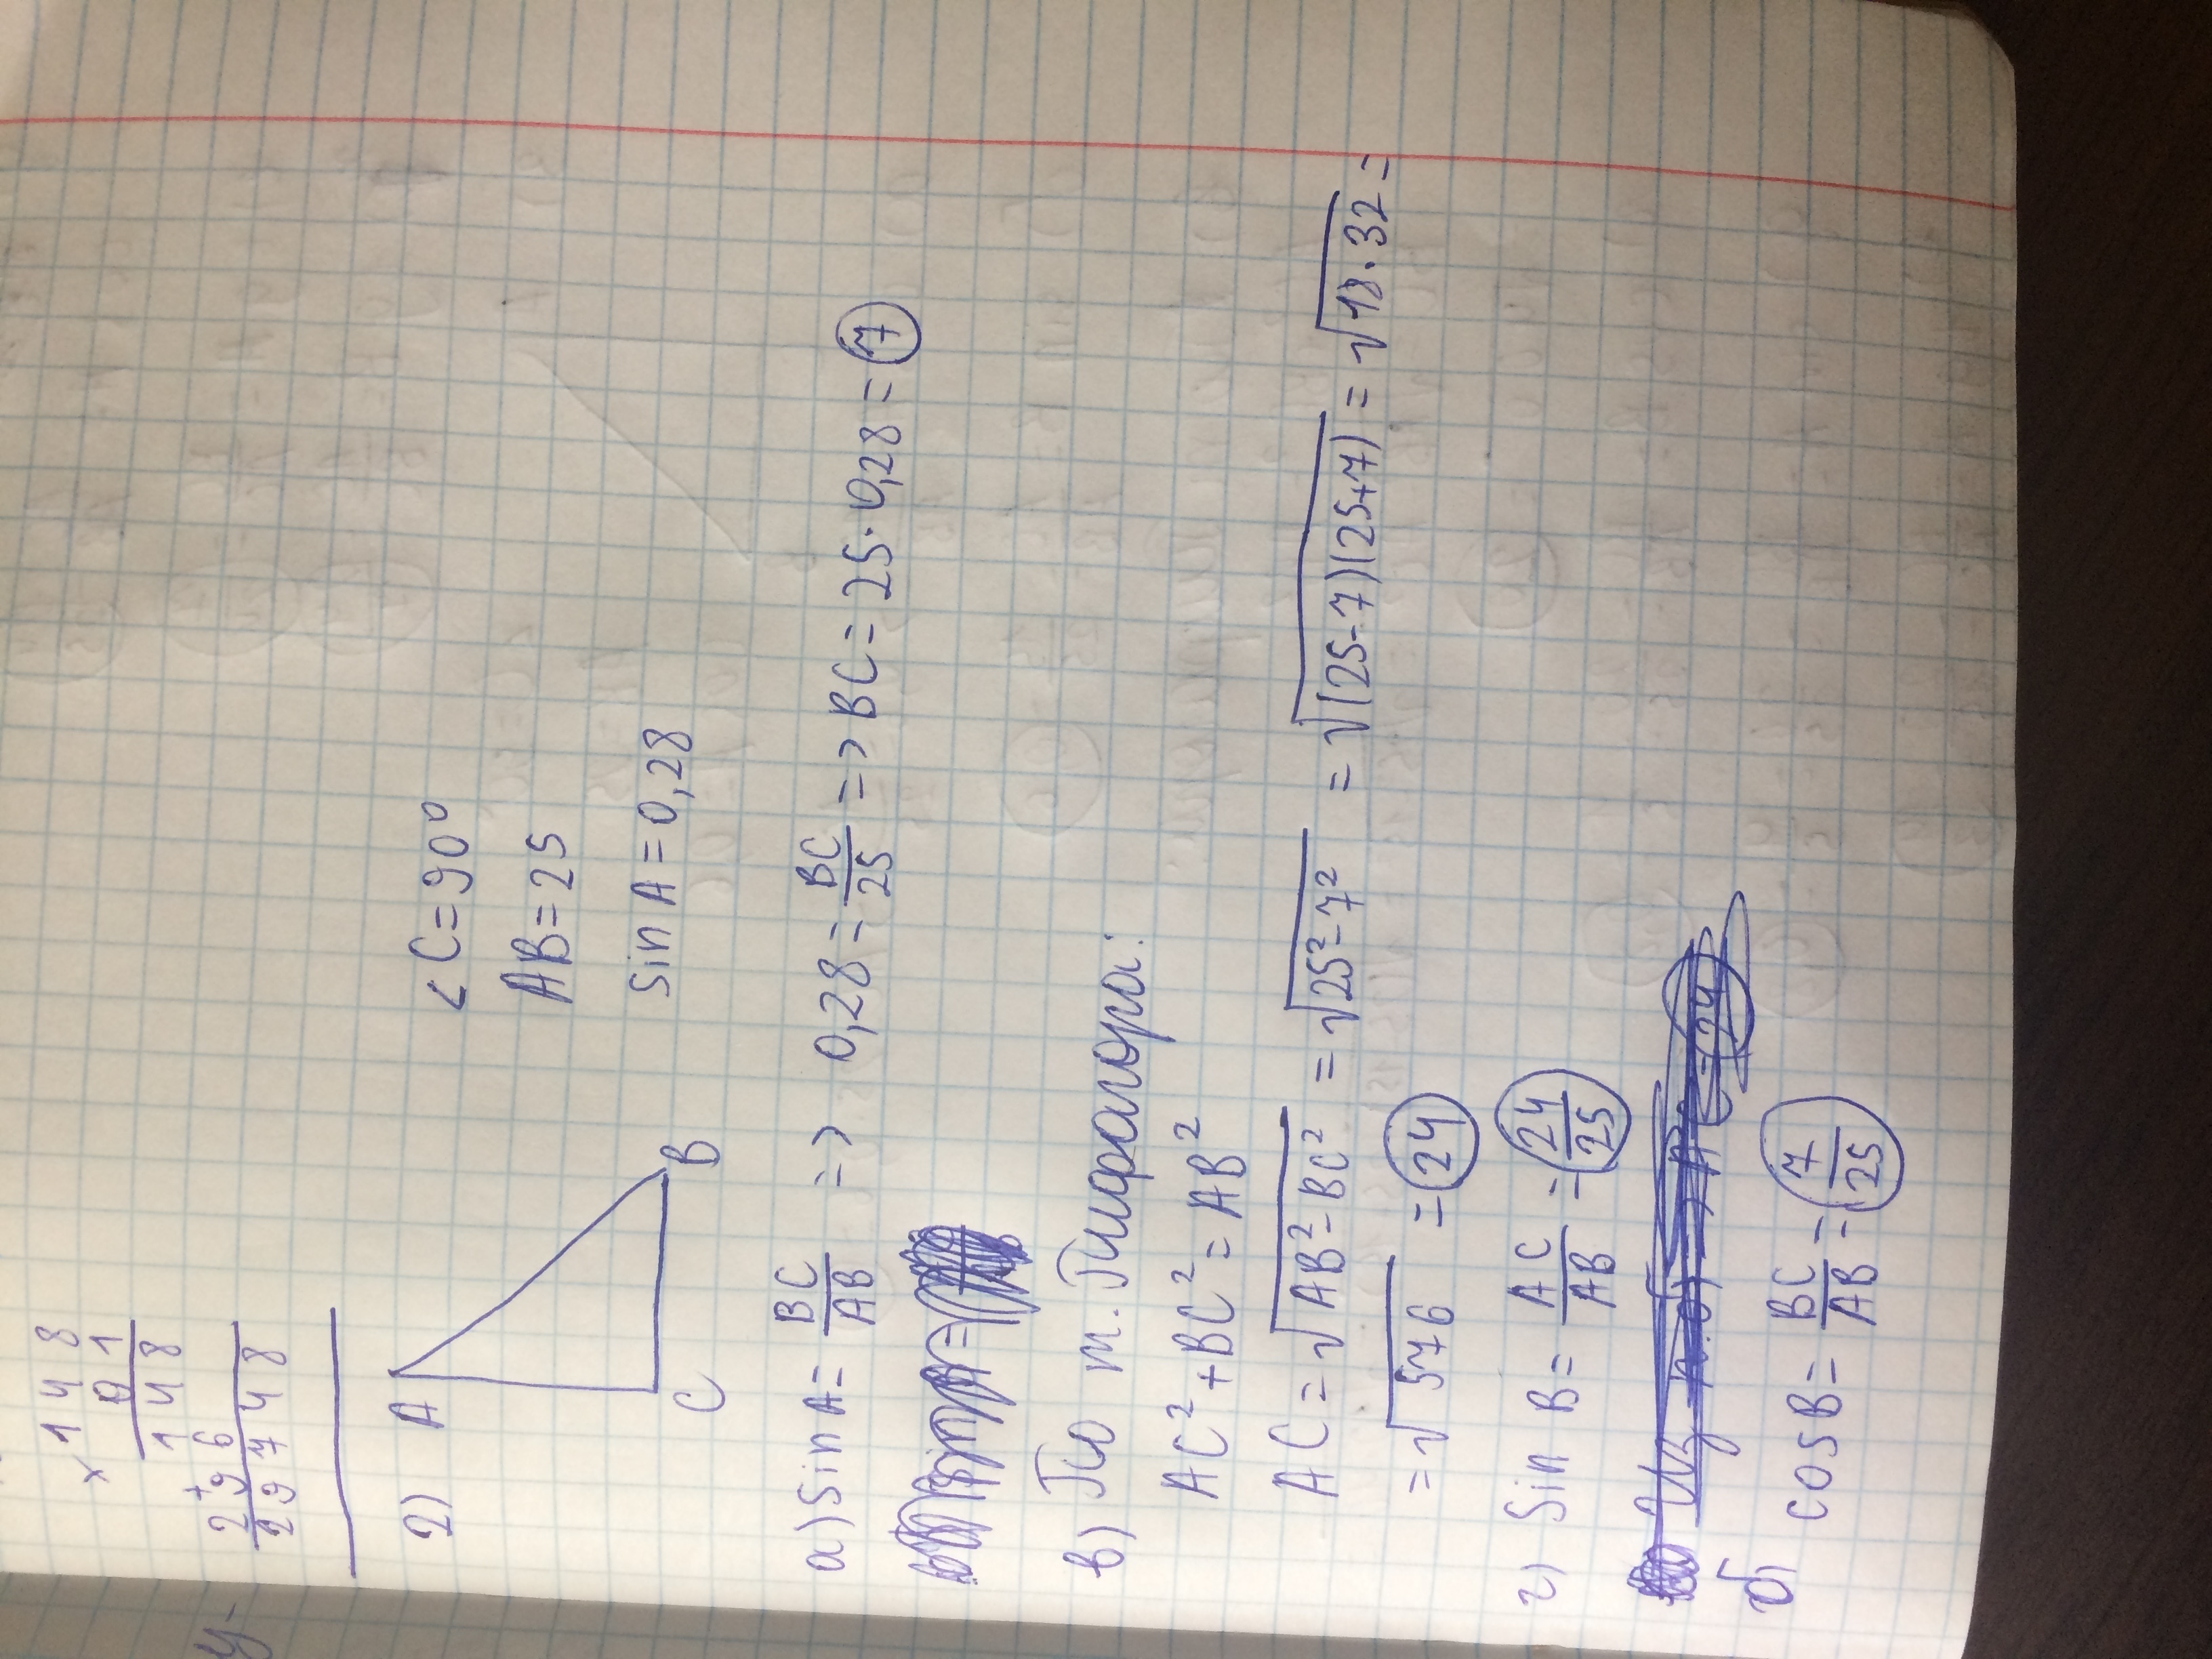 × 1 4 8
0 1
1 4 8
+
2 9 6
2 9 7 4 8
2)
A
C
B
∠C=90°
AB=25
sin A=0,28
а) sin A= BC/AB => 0,28= BC/25 => BC=25·0,28=7
в) По т. Пифагора:
AC²+BC²=AB²
AC=√AB²-BC² =√25²-7² =√(25-7)(25+7) =√18·32=
=√576 =24
г) Sin B= AC/AB = 24/25
б) cosB= BC/AB = 7/25